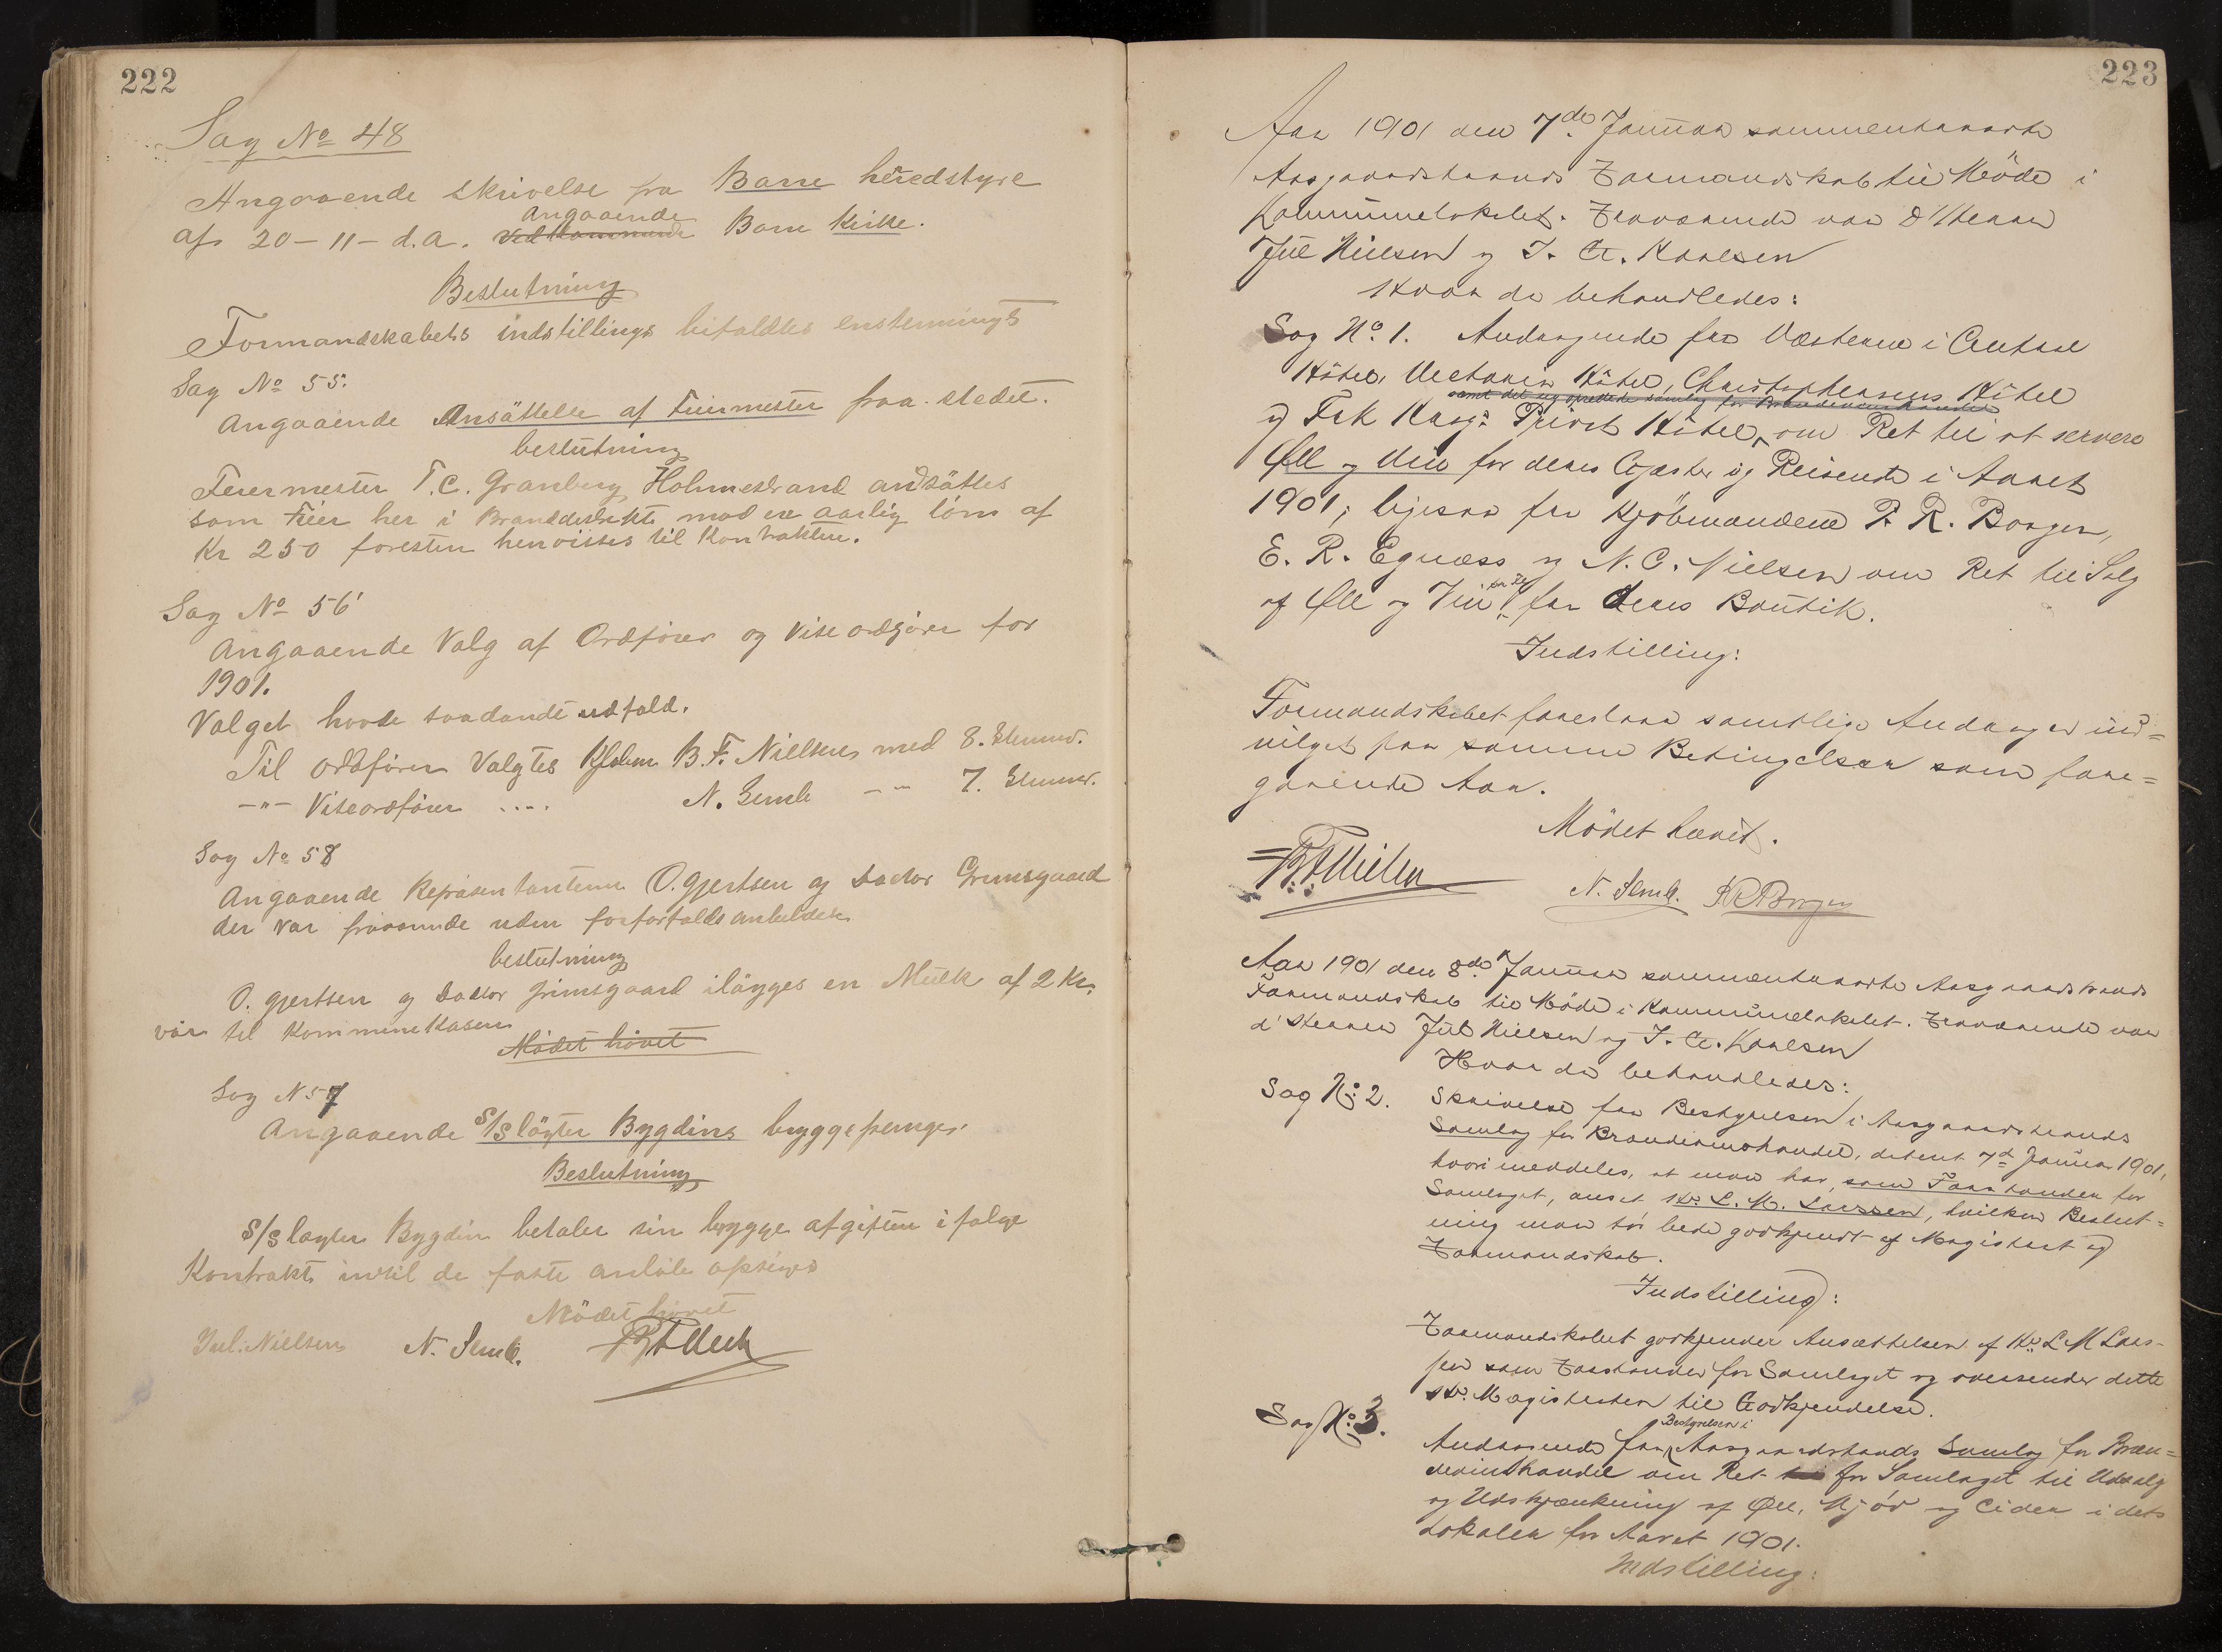 222
Sag No 48
Angaaende skrivelse fra Borre heredstyre
af 20-11-d.a. Angaaende Borre Kirke.
Beslutning
Formandskabets indstillings bifaldtes enstemmigt
Sag No 55.
Angaaende Ansättelse af Feiermester paa stedet.
beslutning
Feiermester T.C. Granberg, Holmestrand andsättes
som Feier her i Branddistrikt mod en aarlig løn af
Kr 250 foresten henvises til Kontrakten.
Sag No 56
Angaaende Valg af Ordfører og viseordfører for
1901.
Valget havde saadandt udfald.
Til Ordfører Valgtes B.F. Nielsen med 8. Stemmer.
-"- Viseordfører .... N. Semb - - 7. Stemmer.
Sag No 58
Angaaende Repräsentanterne O. Gjertsen og Doctor Grimsgaard
der var fraværende uden forfaldsanmeldelse
beslutning
O. Gjertsen og Doctor Grimsgaard ilägges en Mulk af 2 Kr.
vär til Kommunekassen
Mödet hävet
Sag N 57
Angaaende S/S løgter Bygdins bryggepenger.
Beslutning
S/S løgter Bygdin betaler sin brygge afgifter ifølge
Kontrakt indtil de faste anløb opsiges
Mödet hävet
Jul. Nielsen N. Semb. B F Nielsen
223
Aar 1901 den 7de Januar sammentraadte
Aasgaardstrands Formandskab til Möde i
Kommunelokalet. Fraværende var d'Herrer
Jul Nielsen og J. A. Karlsen
Hvor da behandledes:
Sag No. 1. Andragende fra Værterne i Central
Hôtel, Victoria Hôtel, Christophersens Hôtel
samt det nyoprettede samlag for Brændevinshandel
og Frk Hôtel, om Ret til at servere
Øll og Vin for deres Gjæster og Reisende i Aaret
1901; ligesaa fra Kjöbmændene P. R. Borgen,
E. R. Egnæss og N. C. Nielsen om Ret til Salg
af Øll og Vin fra deres Boutik.
Indstilling:
Formandskabet foreslaar samtlige Andrager ind=
vilget paa samme Betingelser som fore=
gaaende Aar.
Mödet hævet.
B F Nielsen N. Semb. P R Borgen
Aar 1901 den 8de Januar sammentraadte Aasgaardstrands
Formandskab til Möde i Kommunelokalet. Fraværende var
d'Herrer Jul Nielsen og J. A. Karlsen
Hvor da behandledes:
Sag No. 2. Skrivelse fra Bestyrelsen i Aasgaardstrands
Samlag for Brændevinshandel, dateret 7d Januar 1901,
hvori meddeles, at man har, som Forstander for
Samlaget, ansat Hr. L. M. Larssen, hvilken Beslut=
ning man tör bede godkjendt af Magistrat og
Formandskab.
Indstilling:
Formandskabet godkjender Ansættelsen af Hr. L M Lars-
sen som Forstander for Samlaget og oversender dette
Hr. Magistraten til Godkjendelse.
Sag No. 3.
Andragende fra Bestyrelsen i Aasgaardstrands Samlag for Bræn=
devinshandel om Ret for Samlaget til Udsalg
og Udskjænkning af Øll, Mjød og Cider i dets
Lokaler for Aaret 1901.
Indstilling: